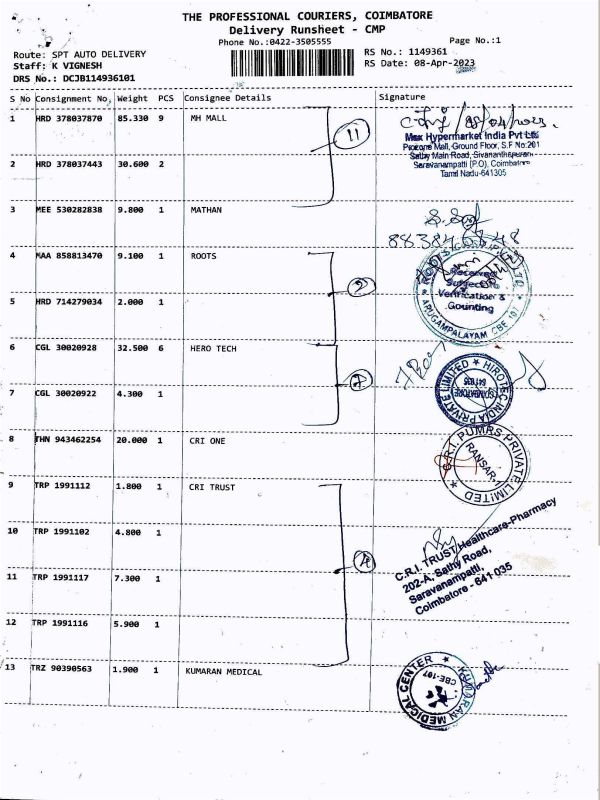 THE PROFESSIONAL COURIERS, COIMBATORE
Delivery Runsheet - CMP
Phone No.:0422-3505555
Page No.:1
Route: SPT AUTO DELIVERY
RS No.: 1149361
Staff: K VIGNESH
RS Date: 08-Apr-2023
DRS No.: DCJB114936101
S No Consignment No. Weight PCS Consignee Details Signature
1 HRD 378037870 85.330 9 MH MALL
11
Max Hypermarket India Pvt Ltd
Prozone Mall, Ground Floor, S.F No:201
Sathy Main Road, Sivananthapuram
Saravanampatti (P.O), Coimbatore
Tamil Nadu-641305
2 HRD 378037443 30.600 2
3 MEE 530282838 9.800 1 MATHAN
4 MAA 858813470 9.100 1 ROOTS
Received
Subject to
Verification &
Counting
APUGAMPALAYAM CBE 107
5 HRD 714279034 2.000 1
6 CGL 30020928 32.500 6 HERO TECH
7
HIROTEC INDIA PRIVATE LIMITED
COIMBATORE
641035
7 CGL 30020922 4.300 1
8 THN 943462254 20.000 1 CRI ONE
C.R.I. PUMPS PRIVATE LIMITED
9 TRP 1991112 1.800 1 CRI TRUST
10 TRP 1991102 4.800 1
4
C.R.I. TRUST Healthcare-Pharmacy
202-A, Sathy Road,
Saravanampatti,
Coimbatore - 641 035
11 TRP 1991117 7.300 1
12 TRP 1991116 5.900 1
13 TRZ 90390563 1.900 1 KUMARAN MEDICAL
KUMARAN MEDICAL CENTER
CBE-107